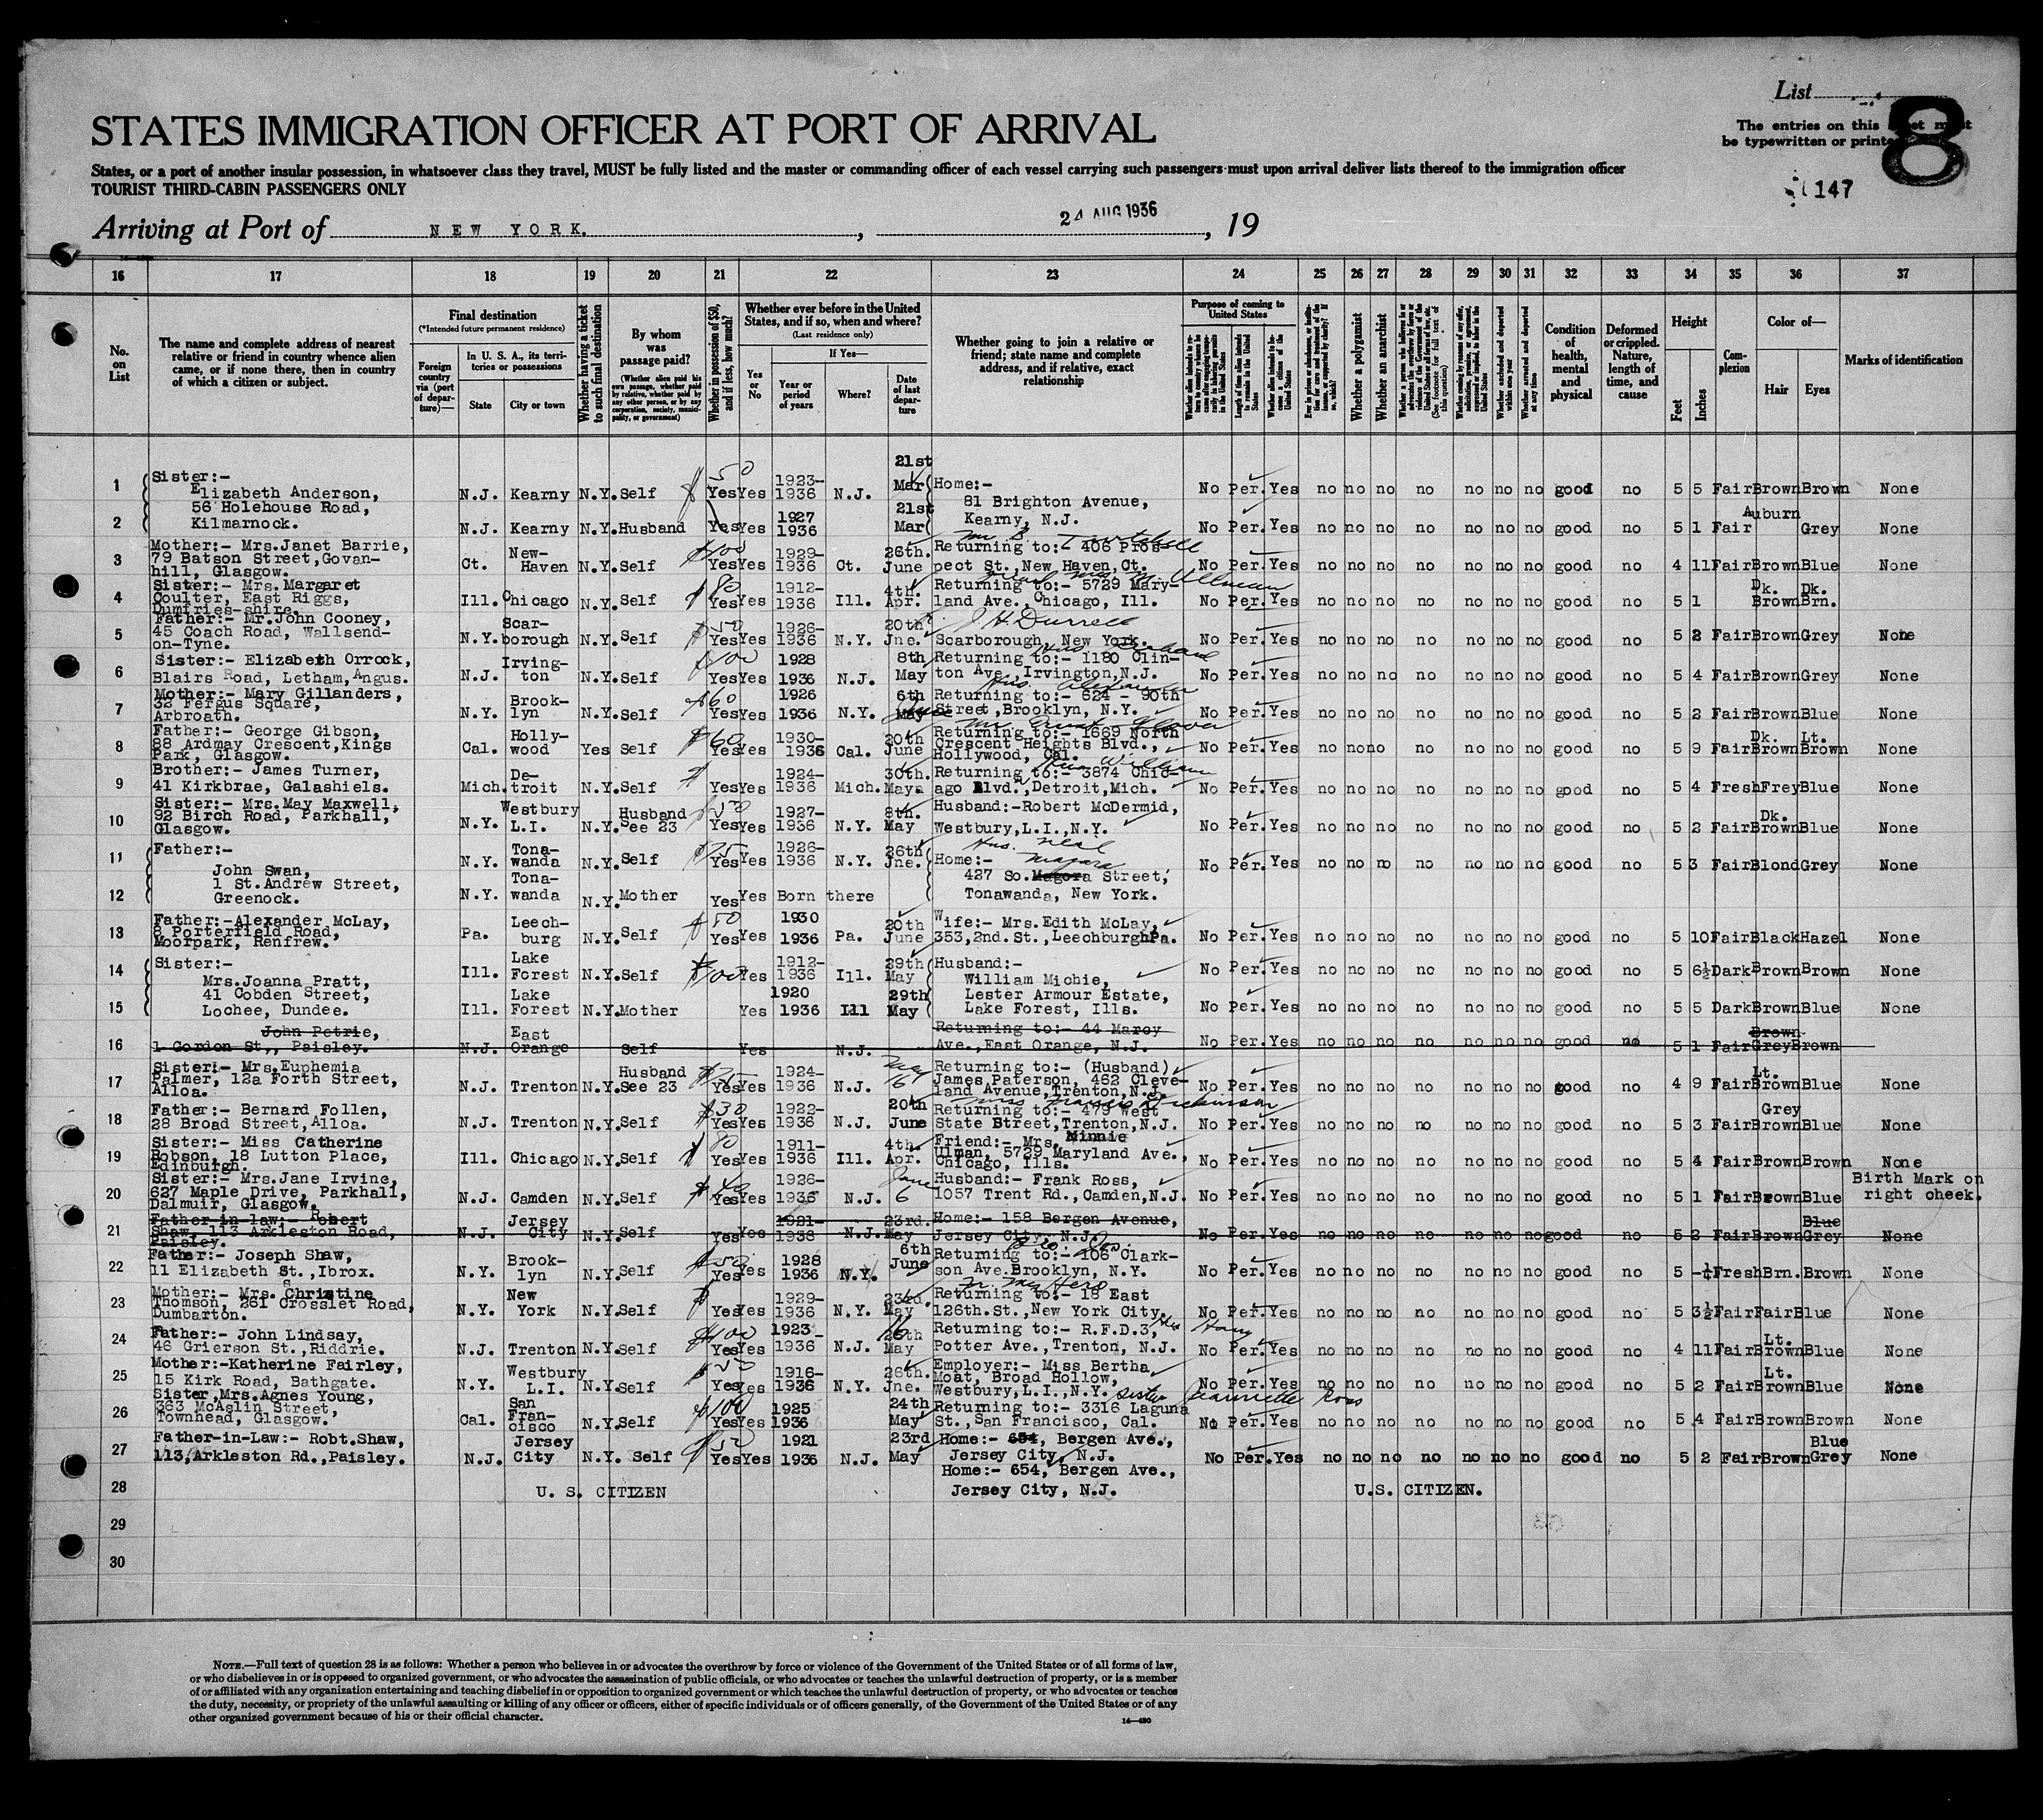 List
8
STATES IMMIGRATION OFFICER AT PORT OF ARRIVAL
The entries on this sheet must
be typewritten or printed
States, or a port of another insular possession, in whatsoever class they travel, MUST be fully listed and the master or commanding officer of each vessel carrying such passengers must upon arrival deliver lists thereof to the immigration officer
TOURIST THIRD-CABIN PASSENGERS ONLY
147
Arriving at Port of NEW YORK. , 24 AUG 1936 , 19
16 17 18 19 20 21 22 23 24 25 26 27 28 29 30 31 32 33 34 35 36 37
No. on List
The name and complete address of nearest relative or friend in country whence alien came, or if none there, then in country of which a citizen or subject.
Final destination
(*Intended future permanent residence)
Foreign country via (port of departure)—
In U. S. A., its territories or possessions
State City or town
Whether having a ticket to such final destination
By whom was passage paid?
(Whether alien paid his own passage, whether paid by relative, whether paid by any other person, or by any corporation, society, municipality, or government)
Whether in possession of $50, and if less, how much?
Whether ever before in the United States, and if so, when and where?
(Last residence only)
Yes or No
If Yes—
Year or period of years Where? Date of last departure
Whether going to join a relative or friend; state name and complete address, and if relative, exact relationship
Purpose of coming to United States
Length of time alien intends to remain in the United States
Whether alien intends to become a citizen of the United States
Whether a polygamist
Whether an anarchist
(See footnote for full text of this question)
Whether excluded and deported within one year
Whether arrested and deported at any time
Condition of health, mental and physical
Deformed or crippled. Nature, length of time, and cause
Height
Feet Inches
Complexion
Color of—
Hair Eyes
Marks of identification
1 Sister:- Elizabeth Anderson, 56 Holehouse Road, Kilmarnock. N.J. Kearny N.Y. Self $50 Yes Yes 1923-1936 N.J. 21st Mar Home:- 81 Brighton Avenue, Kearny, N.J. No Per. Yes no no no no no no no good no 5 5 Fair Brown Brown None
2 N.J. Kearny N.Y. Husband Yes Yes 1927 1936 21st Mar No Per. Yes no no no no no no no good no 5 1 Fair Auburn Grey None
3 Mother:- Mrs.Janet Barrie, 79 Batson Street,Govan-hill, Glasgow. Ct. New-Haven N.Y. Self $100 Yes Yes 1929-1936 Ct. 26th. June Returning to:- 406 Prospect St.,New Haven,Ct. No Per. Yes no no no no no no no good no 4 11 Fair Brown Blue None
4 Sister:- Mrs. Margaret Coulter, East Riggs, Dumfries-shire. Ill. Chicago N.Y. Self $80 Yes Yes 1912-1936 Ill. 4th. Apr. Mrs. M. Ullman Returning to:- 5729 Mary-land Ave.,Chicago, Ill. No Per. Yes no no no no no no no good no 5 1 Dk. Brown Dk. Brn. None
5 Father:- Mr.John Cooney, 45 Coach Road, Wallsend-on-Tyne. N.Y. Scar-borough N.Y. Self $50 Yes Yes 1926-1936 N.Y. 20th Jne. J.H. Durrell Scarborough, New York. No Per. Yes no no no no no no no good no 5 2 Fair Brown Grey None
6 Sister:- Elizabeth Orrock, Blairs Road, Letham,Angus. N.J. Irving-ton N.Y. Self $100 Yes Yes 1928 1936 N.J. 8th May Returning to:- 1180 Clin-ton Ave.,Irvington,N.J. No Per. Yes no no no no no no no good no 5 4 Fair Brown Grey None
7 Mother:- Mary Gillanders, 32 Fergus Square, Arbroath. N.Y. Brook-lyn N.Y. Self $60 Yes Yes 1926 1936 N.Y. 6th May June Hus. Alexander Returning to:- 624 - 90th Street,Brooklyn, N.Y. No Per. Yes no no no no no no no good no 5 2 Fair Brown Blue None
8 Father:- George Gibson, 88 Ardmay Crescent,Kings Park, Glasgow. Cal. Holly-wood Yes Self $60 Yes Yes 1930-1936 Cal. 20th June Mr Ernest Glover Returning to:- 1669 North Crescent Heights Blvd., Hollywood, Cal. No Per. Yes no no no no no no no good no 5 9 Fair Dk. Brown Lt. Brown None
9 Brother:- James Turner, 41 Kirkbrae, Galashiels. Mich. De-troit N.Y. Self Yes Yes 1924-1936 Mich. 30th. May Hus William Returning to:- 3874 Chic-ago Blvd.,Detroit,Mich. No Per. Yes no no no no no no no good no 5 4 Fresh Frey Blue None
10 Sister:- Mrs.May Maxwell, 92 Birch Road, Parkhall, Glasgow. N.Y. Westbury L.I. N.Y. Husband See 23 $50 Yes Yes 1927-1936 N.Y. 8th. May Husband:-Robert McDermid, Westbury,L.I.,N.Y. No Per. Yes no no no no no no no good no 5 2 Fair Dk. Brown Blue None
11 Father:- John Swan, 1 St.Andrew Street, Greenock. N.Y. Tona-wanda N.Y. Self $75 Yes Yes 1926-1936 N.Y. 26th Jne. Hus. Neal Home:- 427 So. Magora Niagara Street, Tonawanda, New York. No Per. Yes no no no no no no no good no 5 3 Fair Blond Grey None
12 N.Y. Tona-wanda N.Y. Mother Yes Yes Born there
13 Father:-Alexander McLay, 8 Porterfield Road, Moorpark, Renfrew. Pa. Leech-burg N.Y. Self $50 Yes Yes 1930 1936 Pa. 20th June Wife:- Mrs.Edith McLay, 353,2nd.St.,LeechburghPa. No Per. Yes no no no no no no no good no 5 10 Fair Black Hazel None
14 Sister:- Mrs.Joanna Pratt, 41 Cobden Street, Lochee, Dundee. Ill. Lake Forest N.Y. Self $100 Yes 1912-1936 Ill. 29th May Husband:- William Michie, Lester Armour Estate, Lake Forest, Ills. No Per. Yes no no no no no no no good no 5 6½ Dark Brown Brown None
15 Ill. Lake Forest N.Y. Mother Yes 1920 1936 Ill 29th May No Per. Yes no no no no no no no good no 5 5 Dark Brown Blue None
16 John Petrie, 1 Gordon St., Paisley. N.J. East Orange Self Yes N.J. Returning to:- 44 Marcy Ave.,East Orange, N.J. No Per. Yes no no no no no no no good no 5 1 Fair Brown Grey Brown
17 Sister:- Mrs.Euphemia Palmer, 12a Forth Street, Alloa. N.J. Trenton N.Y. Husband See 23 $75 Yes Yes 1924-1936 N.J. May 16 Returning to:- (Husband) James Paterson, 462 Cleve-land Avenue,Trenton,N.J. No Per. Yes no no no no no no no good no 4 9 Fair Lt. Brown Blue None
18 Father:- Bernard Follen, 28 Broad Street,Alloa. N.J. Trenton N.Y. Self $30 Yes Yes 1922-1936 N.J. 20th June Miss Frances Dickinson Returning to:- 479 West State Street,Trenton,N.J. No Per. Yes no no no no no no no good no 5 3 Fair Grey Brown Blue None
19 Sister:- Miss Catherine Robson, 18 Lutton Place, Edinburgh. Ill. Chicago N.Y. Self $80 Yes Yes 1911-1936 Ill. 4th. Apr. Friend:- Mrs. Minnie Ulman, 5729 Maryland Ave., Chicago, Ills. No Per. Yes no no no no no no no good no 5 4 Fair Brown Brown None
20 Sister:- Mrs.Jane Irvine, 627 Maple Drive, Parkhall, Dalmuir, Glasgow. N.J. Camden N.Y. Self $40 Yes Yes 1926-1936 N.J. June 6 Husband:- Frank Ross, 1057 Trent Rd.,Camden,N.J. No Per. Yes no no no no no no no good no 5 1 Fair Brown Blue Birth Mark on right cheek.
21 Father-in-law:- Robert Shaw, 113 Arkleston Road, Paisley. N.J. Jersey City N.Y. Self Yes Yes 1921-1936 N.J. 23rd. May Home:- 158 Bergen Avenue, Jersey City, N.J. No Per. Yes no no no no no no no good no 5 2 Fair Brown Blue Grey None
22 Father:- Joseph Shaw, 11 Elizabeth St.,Ibrox. N.Y. Brook-lyn N.Y. Self $50 Yes Yes 1928 1936 N.Y. 6th June Returning to:- 106 Clark-son Ave.Brooklyn, N.Y. No Per. Yes no no no no no no no good no 5 -¼ Fresh Brn. Brown None
23 Mother:- Mrs. Christine Thomson, 261 Crosslet Road, Dumbarton. N.Y. New York N.Y. Self Yes Yes 1929-1936 N.Y. 23rd. May Returning to:- 18 East 126th.St.,New York City. No Per. Yes no no no no no no no good no 5 3½ Fair Fair Blue None
24 Father:- John Lindsay, 46 Grierson St.,Riddrie. N.J. Trenton N.Y. Self $100 Yes Yes 1923-1936 N.J. 16 May Returning to:- R.F.D.3, Hus Harry Potter Ave.,Trenton, N.J. No Per. Yes no no no no no no no good no 4 11 Fair Lt. Brown Blue None
25 Mother:-Katherine Fairley, 15 Kirk Road, Bathgate. N.Y. Westbury L.I. N.Y. Self $50 Yes Yes 1916-1936 N.Y. 26th. Jne. Employer:- Miss Bertha Moat, Broad Hollow, Westbury,L.I.,N.Y. No Per. Yes no no no no no no no good no 5 2 Fair Lt. Brown Blue None
26 Sister,Mrs.Agnes Young, 363 McAslin Street, Townhead, Glasgow. Cal. San Fran-cisco N.Y. Self $100 Yes Yes 1925 1936 24th May sister Jeannette Ross Returning to:- 3316 Laguna St.,San Francisco, Cal. No Per. Yes no no no no no no no good no 5 4 Fair Brown Brown None
27 Father-in-Law:- Robt.Shaw, 113,Arkleston Rd.,Paisley. N.J. Jersey City N.Y. Self $50 Yes Yes 1921 1936 N.J. 23rd May Home:- 654, Bergen Ave., Jersey City, N.J. No Per. Yes no no no no no no no good no 5 2 Fair Brown Blue Grey None
28 U. S. CITIZEN Home:- 654, Bergen Ave., Jersey City, N.J. U.S. CITIZEN.
29
30
NOTE.—Full text of question 28 is as follows: Whether a person who believes in or advocates the overthrow by force or violence of the Government of the United States or of all forms of law,
or who disbelieves in or is opposed to organized government, or who advocates the assassination of public officials, or who advocates or teaches the unlawful destruction of property, or is a member
of or affiliated with any organization entertaining and teaching disbelief in or opposition to organized government or which teaches the unlawful destruction of property, or who advocates or teaches
the duty, necessity, or propriety of the unlawful assaulting or killing of any officer or officers, either of specific individuals or of officers generally, of the Government of the United States or of any
other organized government because of his or their official character.
14—480